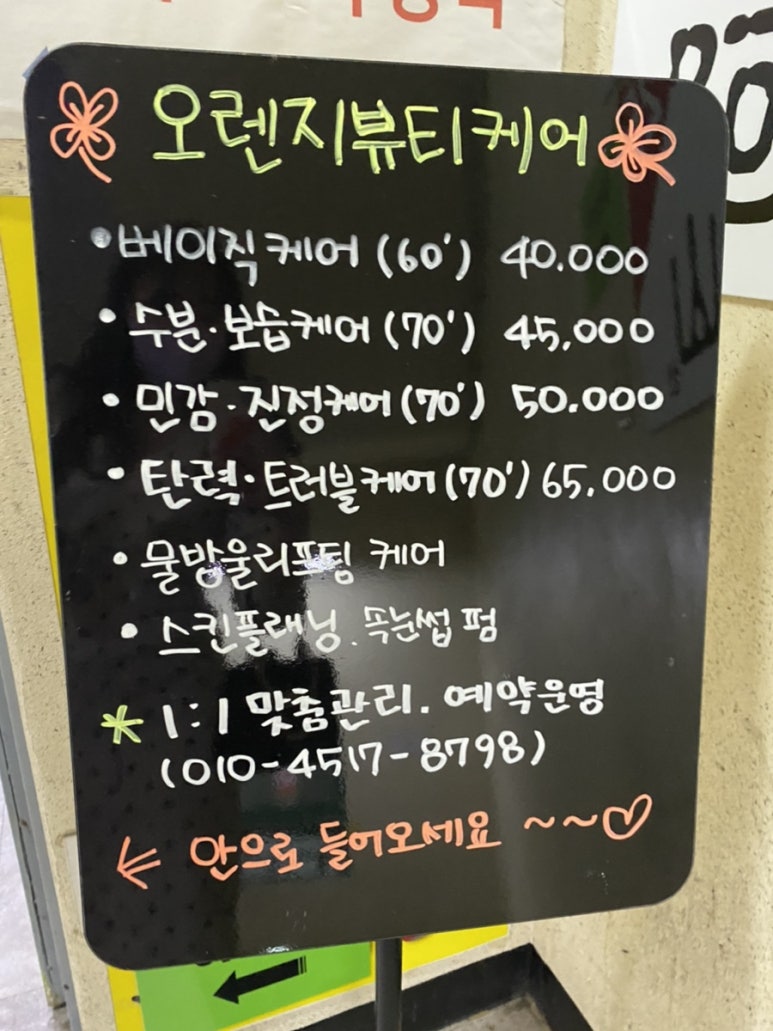 오렌지뷰티케어
• 베이직케어 (60') 40.000
• 수분·보습케어 (70') 45,000
• 민감·진정케어 (70') 50.000
• 탄력·트러블케어 (70') 65,000
• 물방울리프팅 케어
• 스킨플래닝. 속눈썹 펌
* 1:1 맞춤관리. 예약운영
(010-4517-8798)
← 안으로 들어오세요 ~~♡